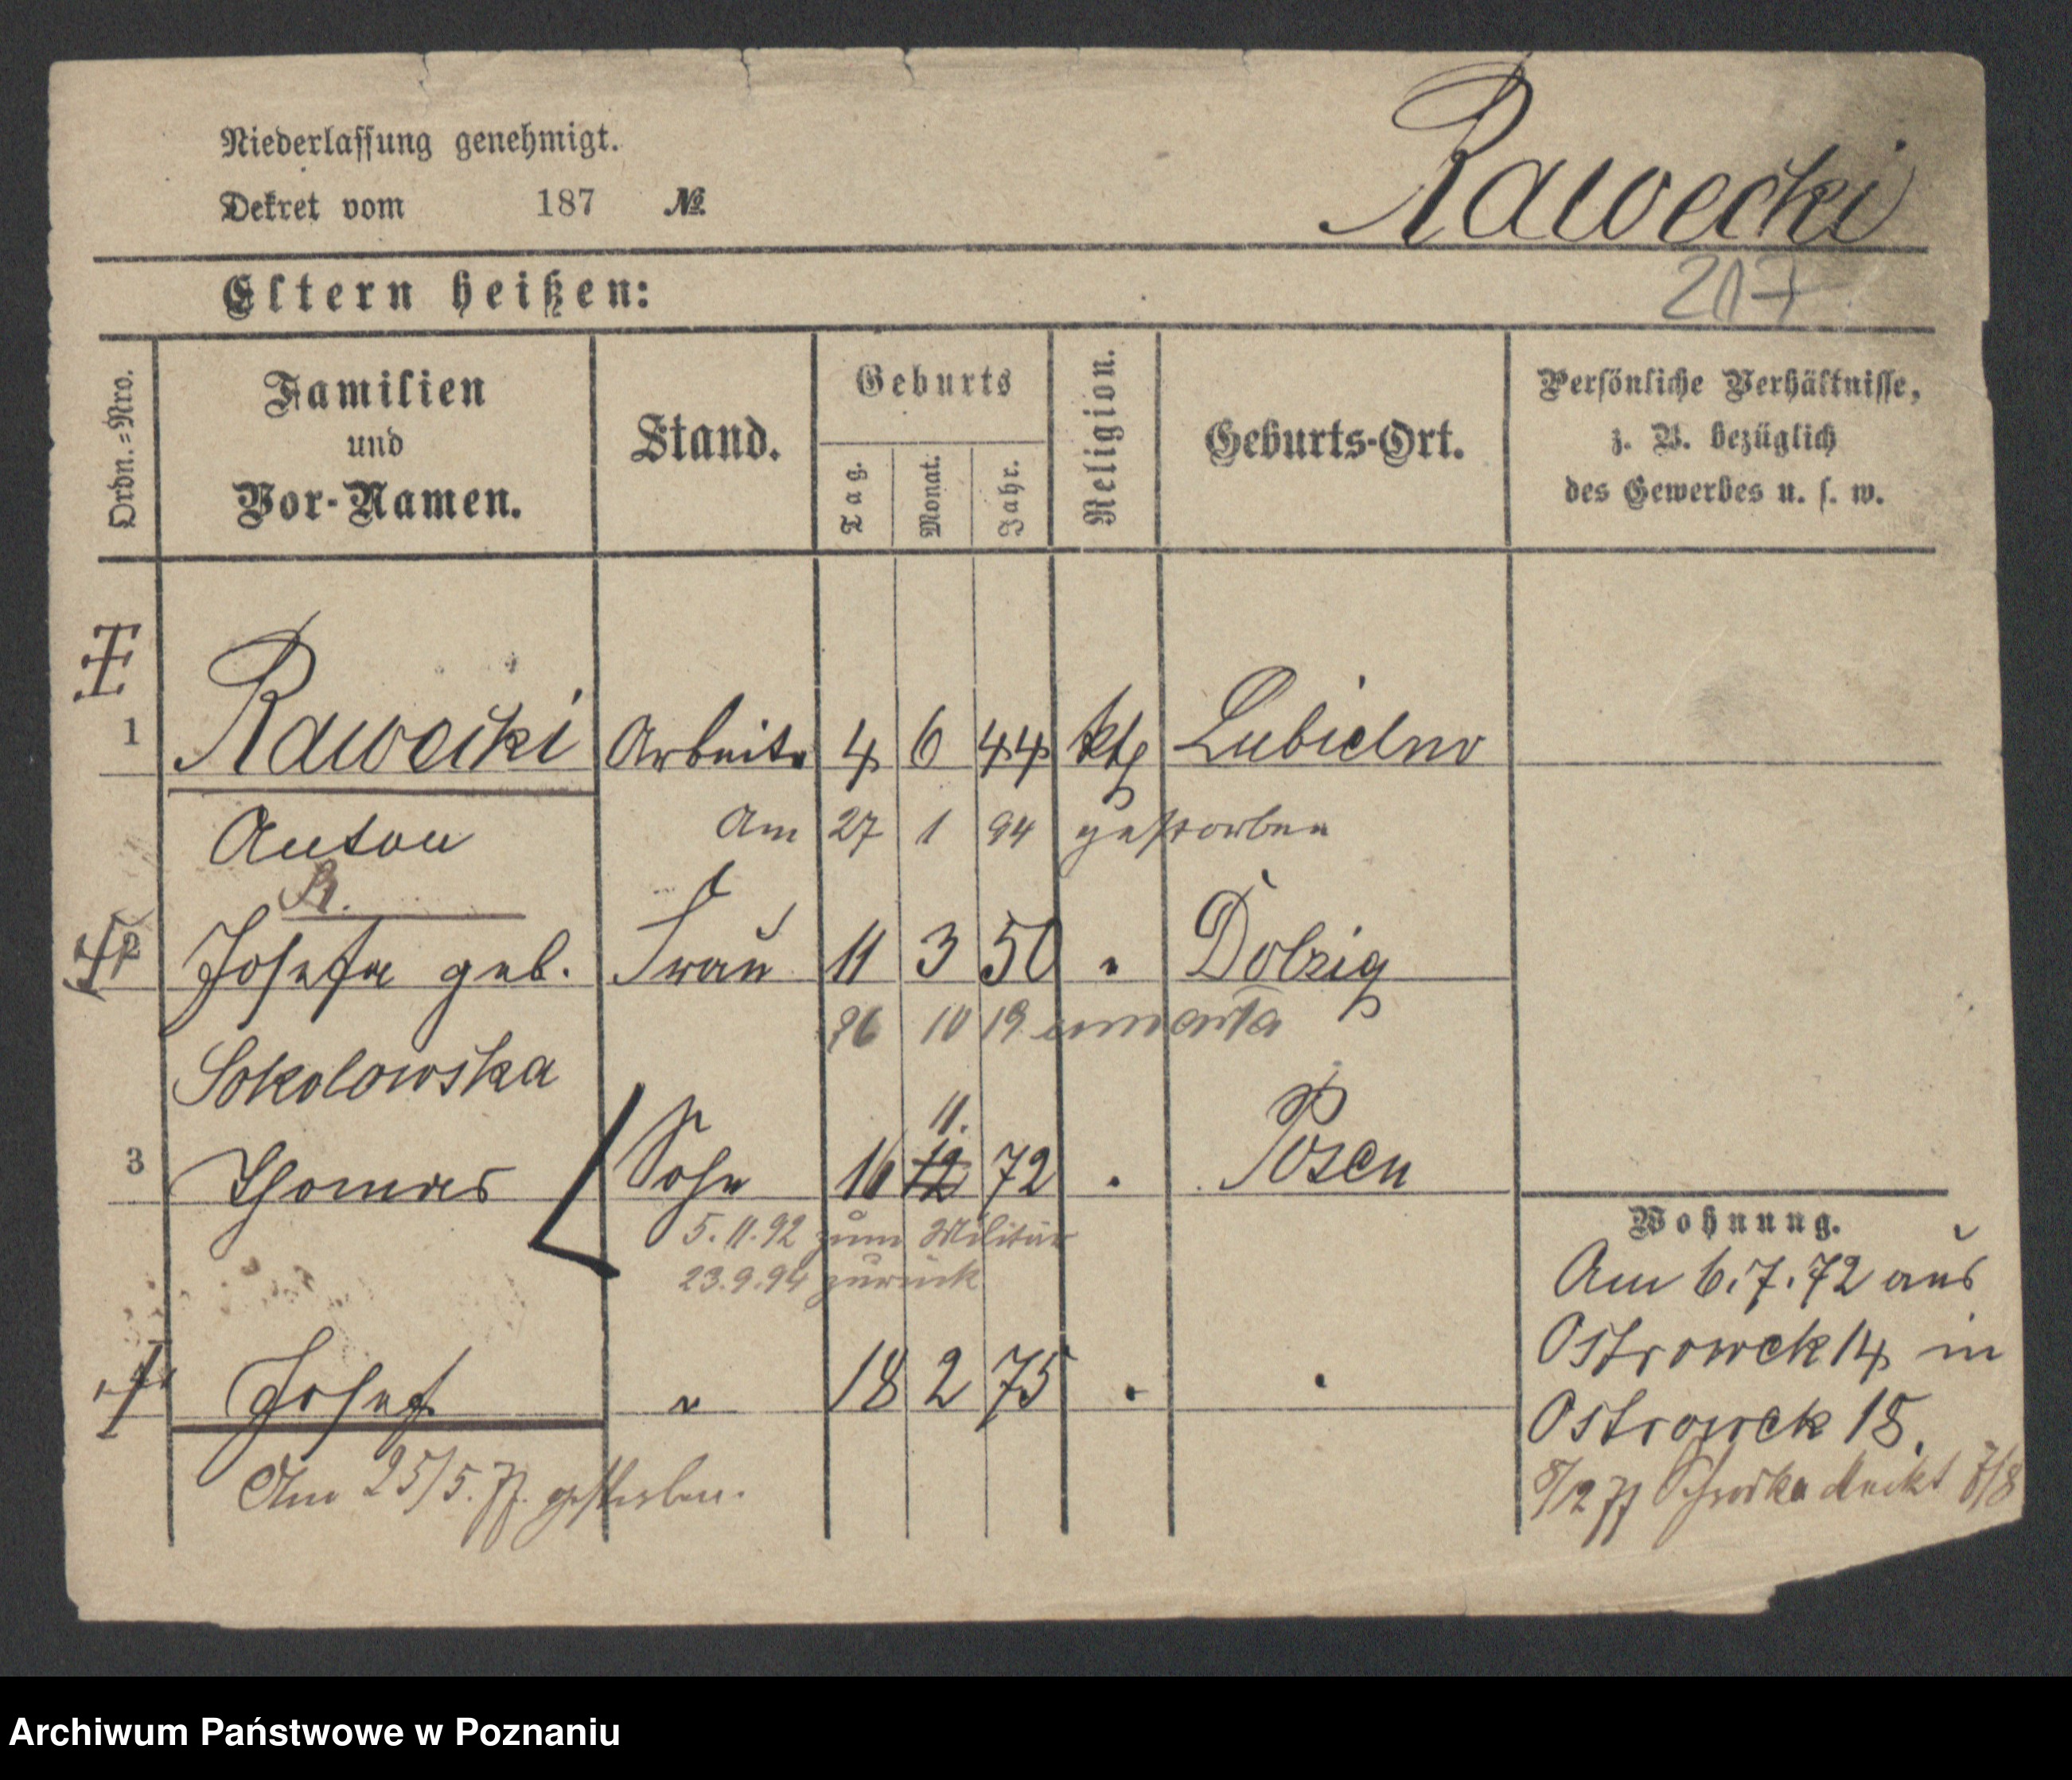 Niederlassung genehmigt.
Dekret vom 187 №
Rawecki
217
Eltern heißen:
Ordn.=Nro.
Familien
und
Vor-Namen.
Stand.
Geburts
Tag.
Monat.
Jahr.
Religion.
Geburts-Ort.
Persönliche Verhältnisse,
z. B. bezüglich
des Gewerbes u. s. w.
1 Rawecki Arbeiter 4 6 44 kth Lubielno
Anton Am 27 1 94 gestorben
R.
2 Josefa geb. Frau 11 3 50 " Dolzig
10 19 umarła
Sokolowska
11.
3 Thomas Sohn 16 12 72 " Posen
5.11.92 zum Militär
23.9.94 zurück
Josef " 18 2 75 " "
Am 25/5.77 gestorben.
Wohnung.
Am 6.7.72 aus
Ostrowek 14 in
Ostrowek 18.
8/12 77 Schrodka Markt 7/8
Archiwum Państwowe w Poznaniu